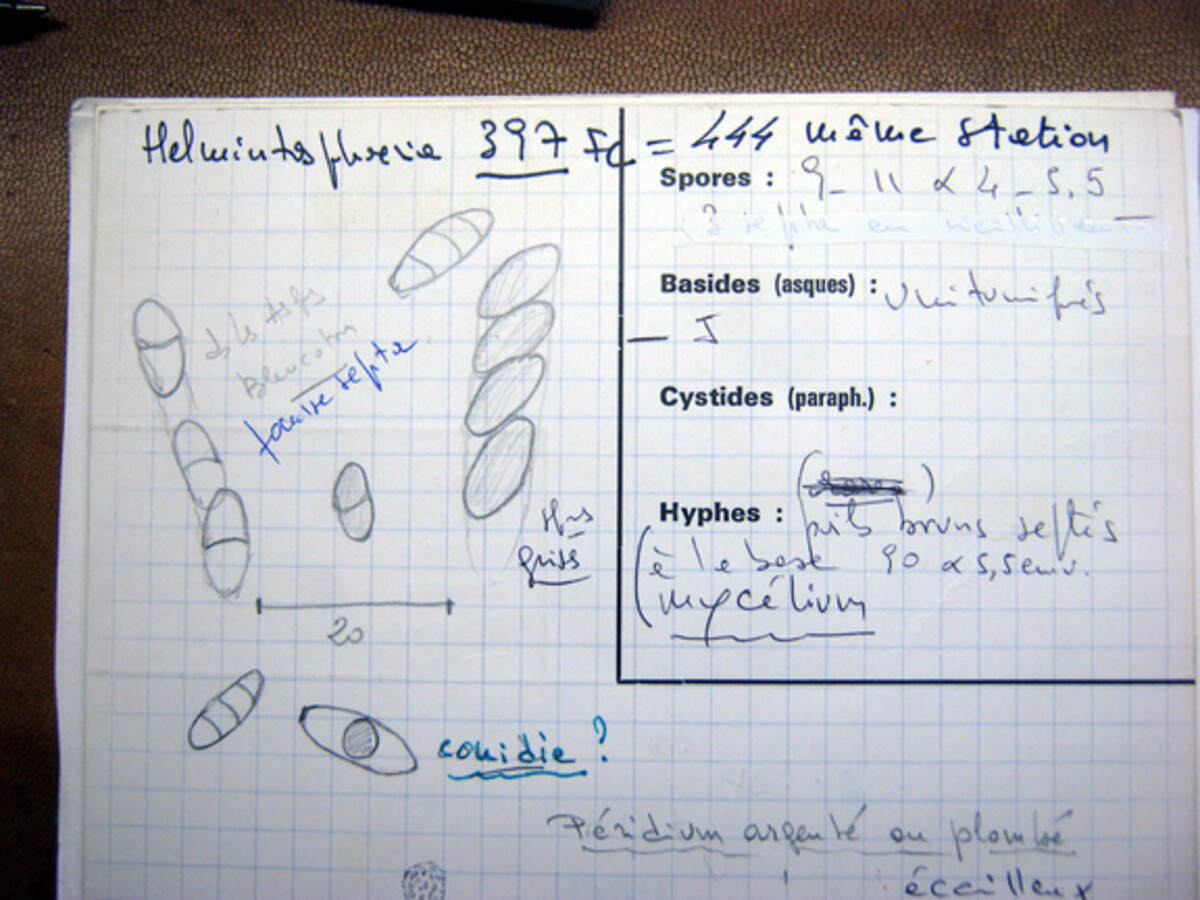 Helmintosphaeria 397 Fd = 444 même station
Spores : 9 - 11 x 4 - 5,5
3 septa en vieillissant
Basides (asques) : Unitunifiés
— J
Cystides (paraph.) :
Hyphes :
poils bruns septés
à la base 90 x 5,5 env.
mycélium
ds les asques
fausse septa
Hrs
gris
20
conidie ?
Péridium argenté ou plombé
écailleux